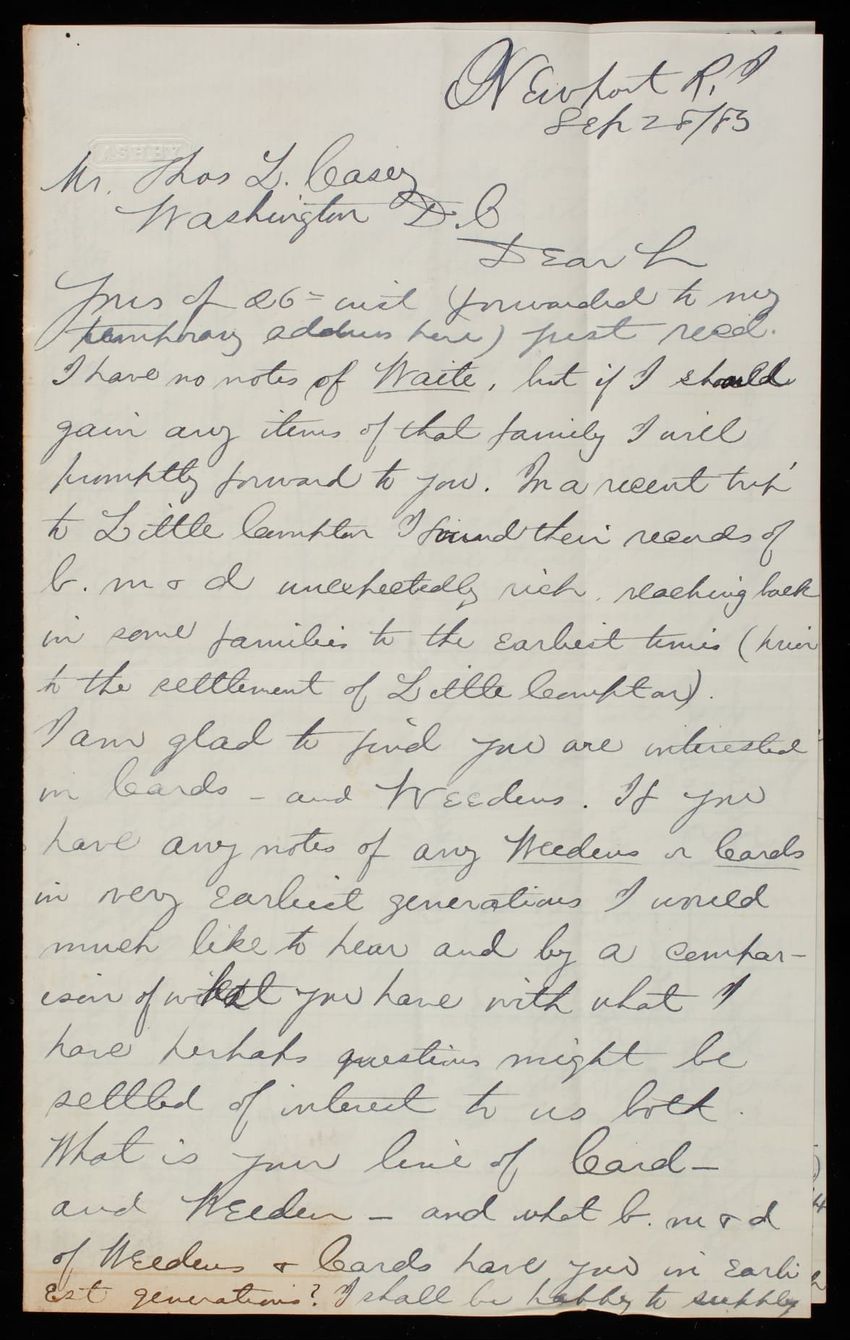 Newport R. I
Sep 28/83
Mr. Thos L. Casey
Washington D. C
Dear Sir
Yours of 26 = inst (forwarded to my
temporary address here) just recd.
I have no notes of Waite, but if I should
gain any items of that family I will
promptly forward to you. In a recent trip
to Little Compton I found their records of
b. m & d unexpectedly rich, reaching back
in some families to the earliest times (prior
to the settlement of Little Compton).
I am glad to find you are interested
in Cards - and Weedens. If you
have any notes of any Weedens or Cards
in very earliest generations I would
much like to hear and by a compar-
ison of what you have with what I
have perhaps questions might be
settled of interest to us both.
What is your line of Card -
and Weeden - and what b. m & d
of Weedens & Cards have you in earli
est generations? I shall be happy to supply